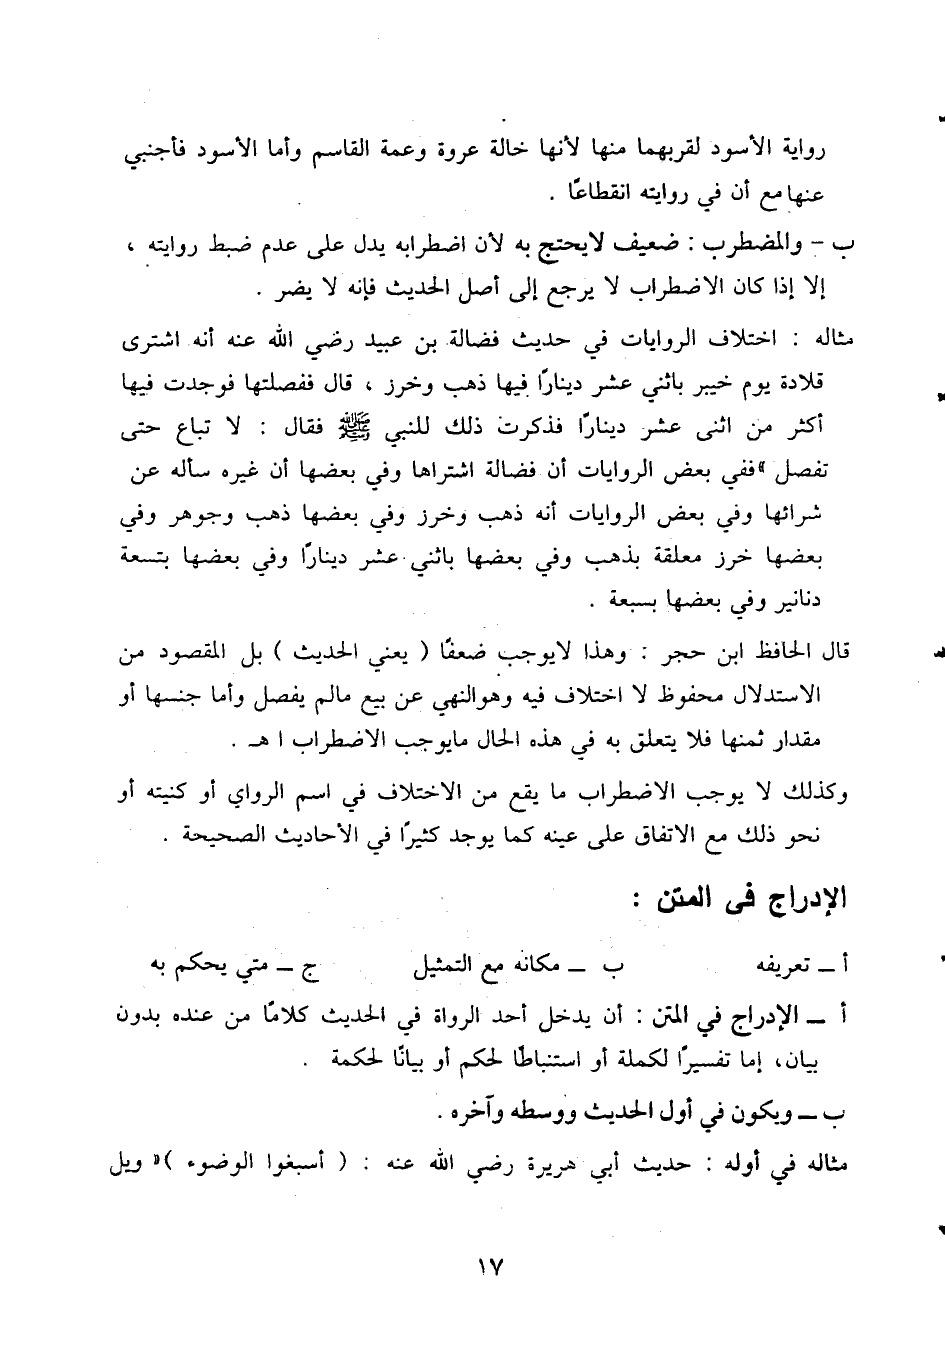 رواية الأسود لقربهما منها لأنها خالة عروة وعمة القاسم وأما الأسود فأجنبي
عنها مع أن في روايته انقطاعًا .
ب - والمضطرب : ضعيف لايحتج به لأن اضطرابه يدل على عدم ضبط روايته ،
إلا إذا كان الاضطراب لا يرجع إلى أصل الحديث فإنه لا يضر .
مثاله : اختلاف الروايات في حديث فضالة بن عبيد رضي الله عنه أنه اشترى
قلادة يوم خيبر باثني عشر دينارًا فيها ذهب وخرز ، قال ففصلتها فوجدت فيها
أكثر من اثنى عشر دينارًا فذكرت ذلك للنبي ﷺ فقال : لا تباع حتى
تفصل » ففي بعض الروايات أن فضالة اشتراها وفي بعضها أن غيره سأله عن
شرائها وفي بعض الروايات أنه ذهب وخرز وفي بعضها ذهب وجوهر وفي
بعضها خرز معلقة بذهب وفي بعضها باثني عشر دينارًا وفي بعضها بتسعة
دنانير وفي بعضها بسبعة .
قال الحافظ ابن حجر : وهذا لايوجب ضعفًا ( يعني الحديث ) بل المقصود من
الاستدلال محفوظ لا اختلاف فيه وهوالنهي عن بيع مالم يفصل وأما جنسها أو
مقدار ثمنها فلا يتعلق به في هذه الحال مايوجب الاضطراب ا هـ .
وكذلك لا يوجب الاضطراب ما يقع من الاختلاف في اسم الرواي أو كنيته أو
نحو ذلك مع الاتفاق على عينه كما يوجد كثيرًا في الأحاديث الصحيحة .
الإدراج فى المتن :
أ ــ تعريفه ب ــ مكانه مع التمثيل ج ــ متي يحكم به
أ ــ الإدراج في المتن : أن يدخل أحد الرواة في الحديث كلامًا من عنده بدون
بيان، إما تفسيرًا لكملة أو استنباطًا لحكم أو بيانًا لحكمة .
ب ــ ويكون في أول الحديث ووسطه وآخره .
مثاله في أوله : حديث أبي هريرة رضي الله عنه : ( أسبغوا الوضوء )« ويل
١٧